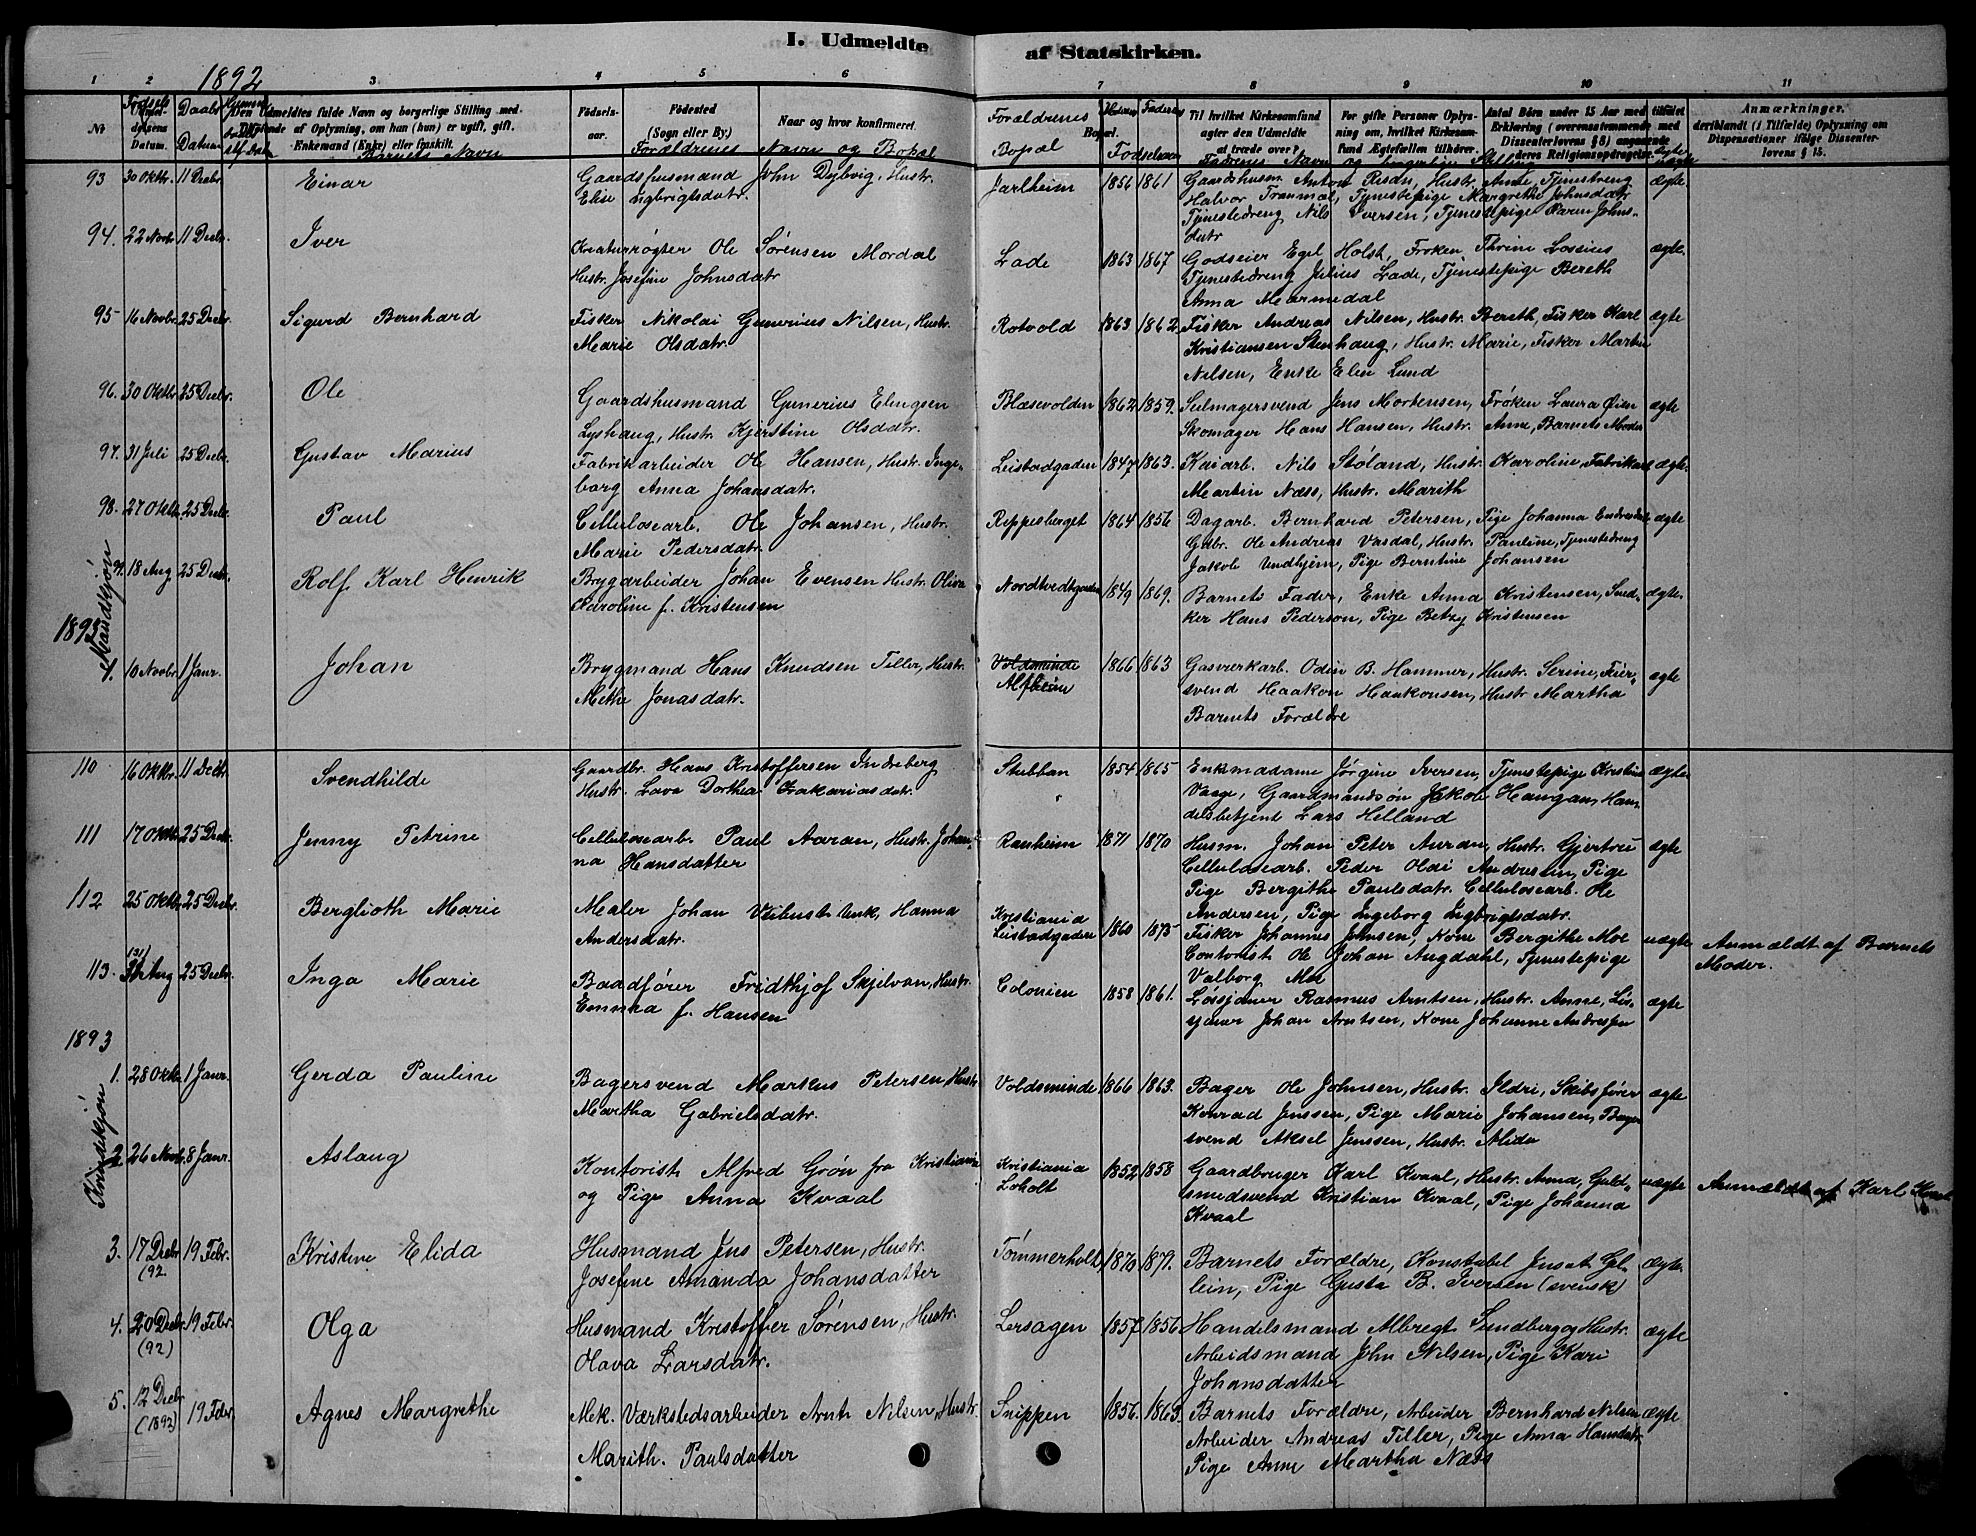 I. Udmeldte af Statskirken.
1 2 3 4 5 6 7 8 9 10 11
1892
Nt
Fødsels Datum.
Daabs Datum
Den Udmeldtes fulde Navn og borgerlige Stilling med
Tilføiende af Oplysning, om han (hun) er ugift, gift,
Enkemand (Enke) eller fraskilt.
Barnets Navn
Fødsels-
aar.
Fødested
(Sogn eller By.)
Naar og hvor konfirmeret.
Forældrenes Navn og Bopæl
Forældrenes
Bopæl
Fødselsaar
Til hvilket Kirkesamfund
agter den Udmeldte
at træde over?
For gifte Personer Oplys-
ning om, hvilket Kirkesam-
fund Ægtefællen tilhører.
Antal Børn under 15 Aar med tilføiet
Erklæring (overensstemmende med
Dissenterlovens § 8) angaaende
deres Religionsopdragelse.
Anmærkninger,
deriblandt (i Tilfælde) Oplysning om
Dispensationer ifølge Dissenter-
lovens § 15.
93 30 Oktbr. 11 Decbr. Einar Gaardshusmand John Dybvig, Hustr. Jarlheim 1856 1861 Gaardshusm. Anton Risan, Hustr. Anne, Tjenestedreng ægte
Elise Ingbrigtsdatr. Halvor Tranmal, Tjenestepige Margrethe Johnsdatr
Tjenestedreng Nils Iversen, Tjenestepige Karen Johns-
datr
94. 22 Novb. 11 Decbr. Iver Kreaturrøgter Ole Sørensen Mordal Lade 1863 1867 Godseier Egel Holst, Frøken Thrine Lossius ægte.
Hustr. Josefine Johnsdatr Tjenestedreng Julius Lade, Tjenestepige Bereth
Anna Marmedal
95 16 Novbr. 25 Decbr. Sigurd Bernhard Fisker Nikolai Gunerius Nilsen, Hustr. Rotvold 1863 1862 Fisker Andreas Nilsen, Hustr. Bereth, Fisker Karl ægte
Marie Olsdatr. Kristiansen Stenhaug, Hustr. Marie, Fisker Martin
Nilsen, Enke Elen Lund
96. 30 Oktbr. 25 Decbr. Ole Gaardshusmand Gunerius Elingsen Blæsevolden 1862 1859. Seilmagersvend Jens Mortensen, Frøken Laura Øien ægte
Lyshaug, Hustr. Kjerstine Olsdatr. Skomager Hans Hansen, Hustr. Anne, Barnets Moder
97. 31 Juli 25 Decbr. Gustav Marius Fabrikarbeider Ole Hansen, Hustr. Inge- Leistadgaden 1847 1863. Kaiarb. Nils Støland, Hustr. Karoline, Fabrikarb. ægte.
borg Anna Johansdatr. Martin Næss, Hustr. Marith
98. 27 Oktbr. 25 Decbr. Paul Cellulosearb. Ole Johansen, Hustr. Reppesberget 1864 1856 Dagarb. Bernhard Petersen, Pige Johanna ægte
Marie Pedersdatr. Gdbr. Ole Andreas Vasdal, Hustr. Pauline, Tjenestedreng
Jakob Undhjem, Pige Berntine Johansen
18 Aug 25 Decbr. Rolf Karl Henrik Brygarbeider Johan Evensen Hustr. Oliva Nordtvedtgaarden 1849 1869. Barnets Fader, Enke Anna Kristensen, Sned- ægte.
Karoline f. Kristensen ker Hans Pederson, Pige Betzy Kristensen
1893
Mandkjøn
1. 10 Novbr. 1 Janr. Johan Brygmand Hans Knudsen Tiller, Hustr. Voldsminde 1866 1863 Gasværkarb. Odin B. Hammer, Hustr. Serine, Feier- ægte
Methe Jonasdatr. Alfheim svend Haakon Haakonsen, Hustr Martha
Barnets Forældre
110 16 Oktbr. 11 Decbr. Svendhilde Gaardbr. Hans Kristoffersen Inderberg Stubban 1854 1865 Enkemadame Jørgine Iversen, Tjenestepige Kristine ægte
Hustr. Lava Dorthea Zakariasdatr. Vaage, Gaardmandsøn Jakob Haugan, Han-
delsbetjent Lars Helland
111 17 Oktbr. 25 Decbr. Jenny Petrine Cellulosearb. Paul Auran, Hustr. Johan- Ranheim 1871 1870 Husm. Johan Peter Auran, Hustr. Gjertru ægte
na Hansdatter Cellulosearb. Peder Olai Andresen, Pige
Pige Bergithe Paulsdatr. Cellulosearb. Ole
Andersen, Pige Ingeborg Ingbrigtsdatr.
112 25 Oktbr. 25 Decbr. Berglioth Marie Maler Johan Unk. Hanna Kristiania 1860 1875 Fisker Johannes Johnsen, Kone Bergithe Moe uægte Anmældt af Barnets
Andersdatr. Leistadgaden Contorist Ole Johan Augdahl, Tjenestepige Moder.
Valborg Moe
113. 31 Aug 25 Decbr. Inga Marie Baadfører Fridthjof Skjelvan, Hustr. Colonien 1858 1861. Løssjouer Rasmus Arntsen, Hustr. Anne, Løs- ægte
Emma f. Hansen sjouer Johan Arntsen, Kone Johanne Andresen
1893
Kvindekjøn
1. 28 Oktbr. 1 Janr. Gerda Pauline Bagersvend Markus Petersen Hustr. Voldsminde 1866 1863. Bager Ole Johnsen, Hustr. Ildri, Skibsfører ægte
Martha Gabrielsdatr. Konrad Jenssen, Pige Marie Johansen, Bager
svend Aksel Jenssen, Hustr. Alida
2 26 Novbr. 8 Janr. Aslaug Kontorist Alfred Grøn fra Kristiania Kristiania 1852 1858 Gaardbruger Karl Kvaal, Hustr. Anna, Guld- uægte Anmældt af Karl Kvaal
og Pige Anna Kvaal Loholt smedsvend Kristian Kvaal, Pige Johanna
Kvaal
3. 17 Decbr. 19 Febr. Kristine Elida Husmand Jens Petersen, Hustr. Tømmerholt 1870 1871. Barnets Forældre, Konstabel Jensat Gel- ægte
(92. Josefine Amanda Johansdatter lein, Pige Gusta B. Iversen (svensk)
4. 20 Decbr. 19 Febr. Olga Husmand Kristoffer Sørensen, Hustr. Lersagen 1857 1856 Handelsmand Albregt Sundberg og Hustr. ægte
(92) Olava Larsdatr. Arbeidsmand John Nilsen, Pige Kari
Johansdatter
5. 12 Decbr 19 Febr. Agnes Margrethe Mek. Værkstedsarbeider Arnt Nilsen, Hustr. Snippen 1856. 1863. Barnets Forældre, Arbeider Bernhard Nilsen ægte
(1892) Marith Paulsdatter Arbeider Andreas Tiller, Pige Anna Hansdatr.
Pige Anne Martha Næss